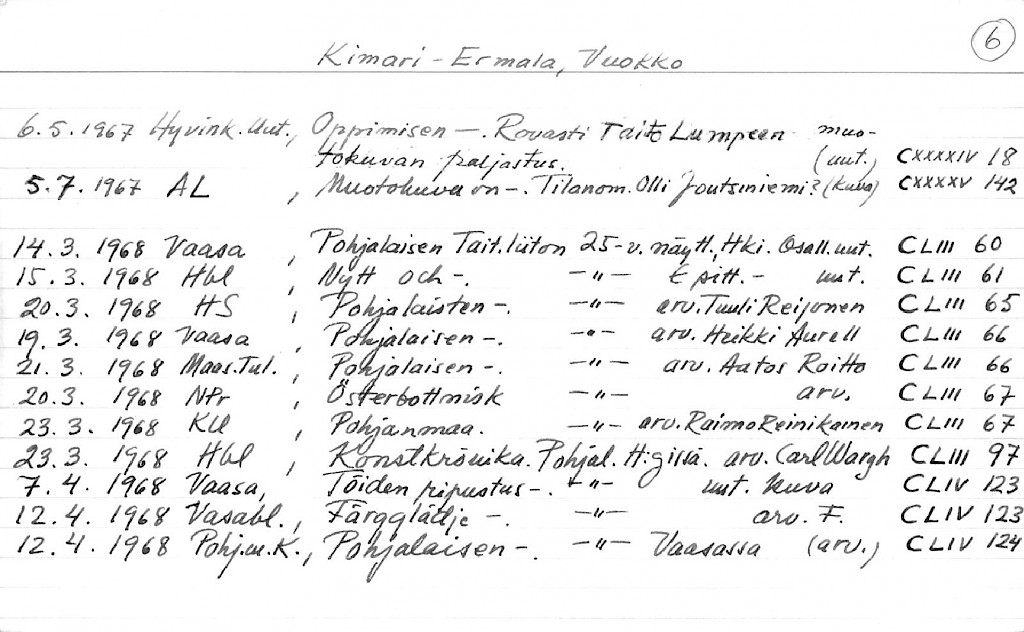 6
Kimari - Ermala, Vuokko
6.5.1967 Hyvink. Uut., Oppimisen —. Rovasti Taito Lumpeen muo-
tokuvan paljastus. (uut.) CXXXXIV 18
5.7.1967 AL , Muotokuva on -. Tilanom. Olli Joutsiniemi? (kuva) CXXXXV 142
14.3.1968 Vaasa , Pohjalaisen Tait.liiton 25-v. näytt., Hki. Osall. uut. CLIII 60
15.3.1968 Hbl , Nytt och -. -"- Epitt.- uut. CLIII 61
20.3.1968 HS , Pohjalaisten -. -"- arv. Tuuli Reijonen CLIII 65
19.3.1968 Vaasa , Pohjalaisen -. -"- arv. Heikki Aurell CLIII 66
21.3.1968 Maas.Tul. , Pohjalaisen -. -"- arv. Aatos Roitto CLIII 66
20.3.1968 NPr , Österbottnisk -"- arv. CLIII 67
23.3.1968 KU , Pohjanmaa. -"- arv. Raimo Reinikainen CLIII 67
23.3.1968 Hbl , Konstkrönika. Pohjal. H:gissä. arv. Carl Wargh CLIII 97
7.4.1968 Vaasa, Töiden ripustus -. -"- uut. kuva CLIV 123
12.4.1968 Vasabl., Färgglädje -. -"- arv. F. CLIV 123
12.4.1968 Pohj.m.K., Pohjalaisen -. -"- Vaasassa (arv.) CLIV 124